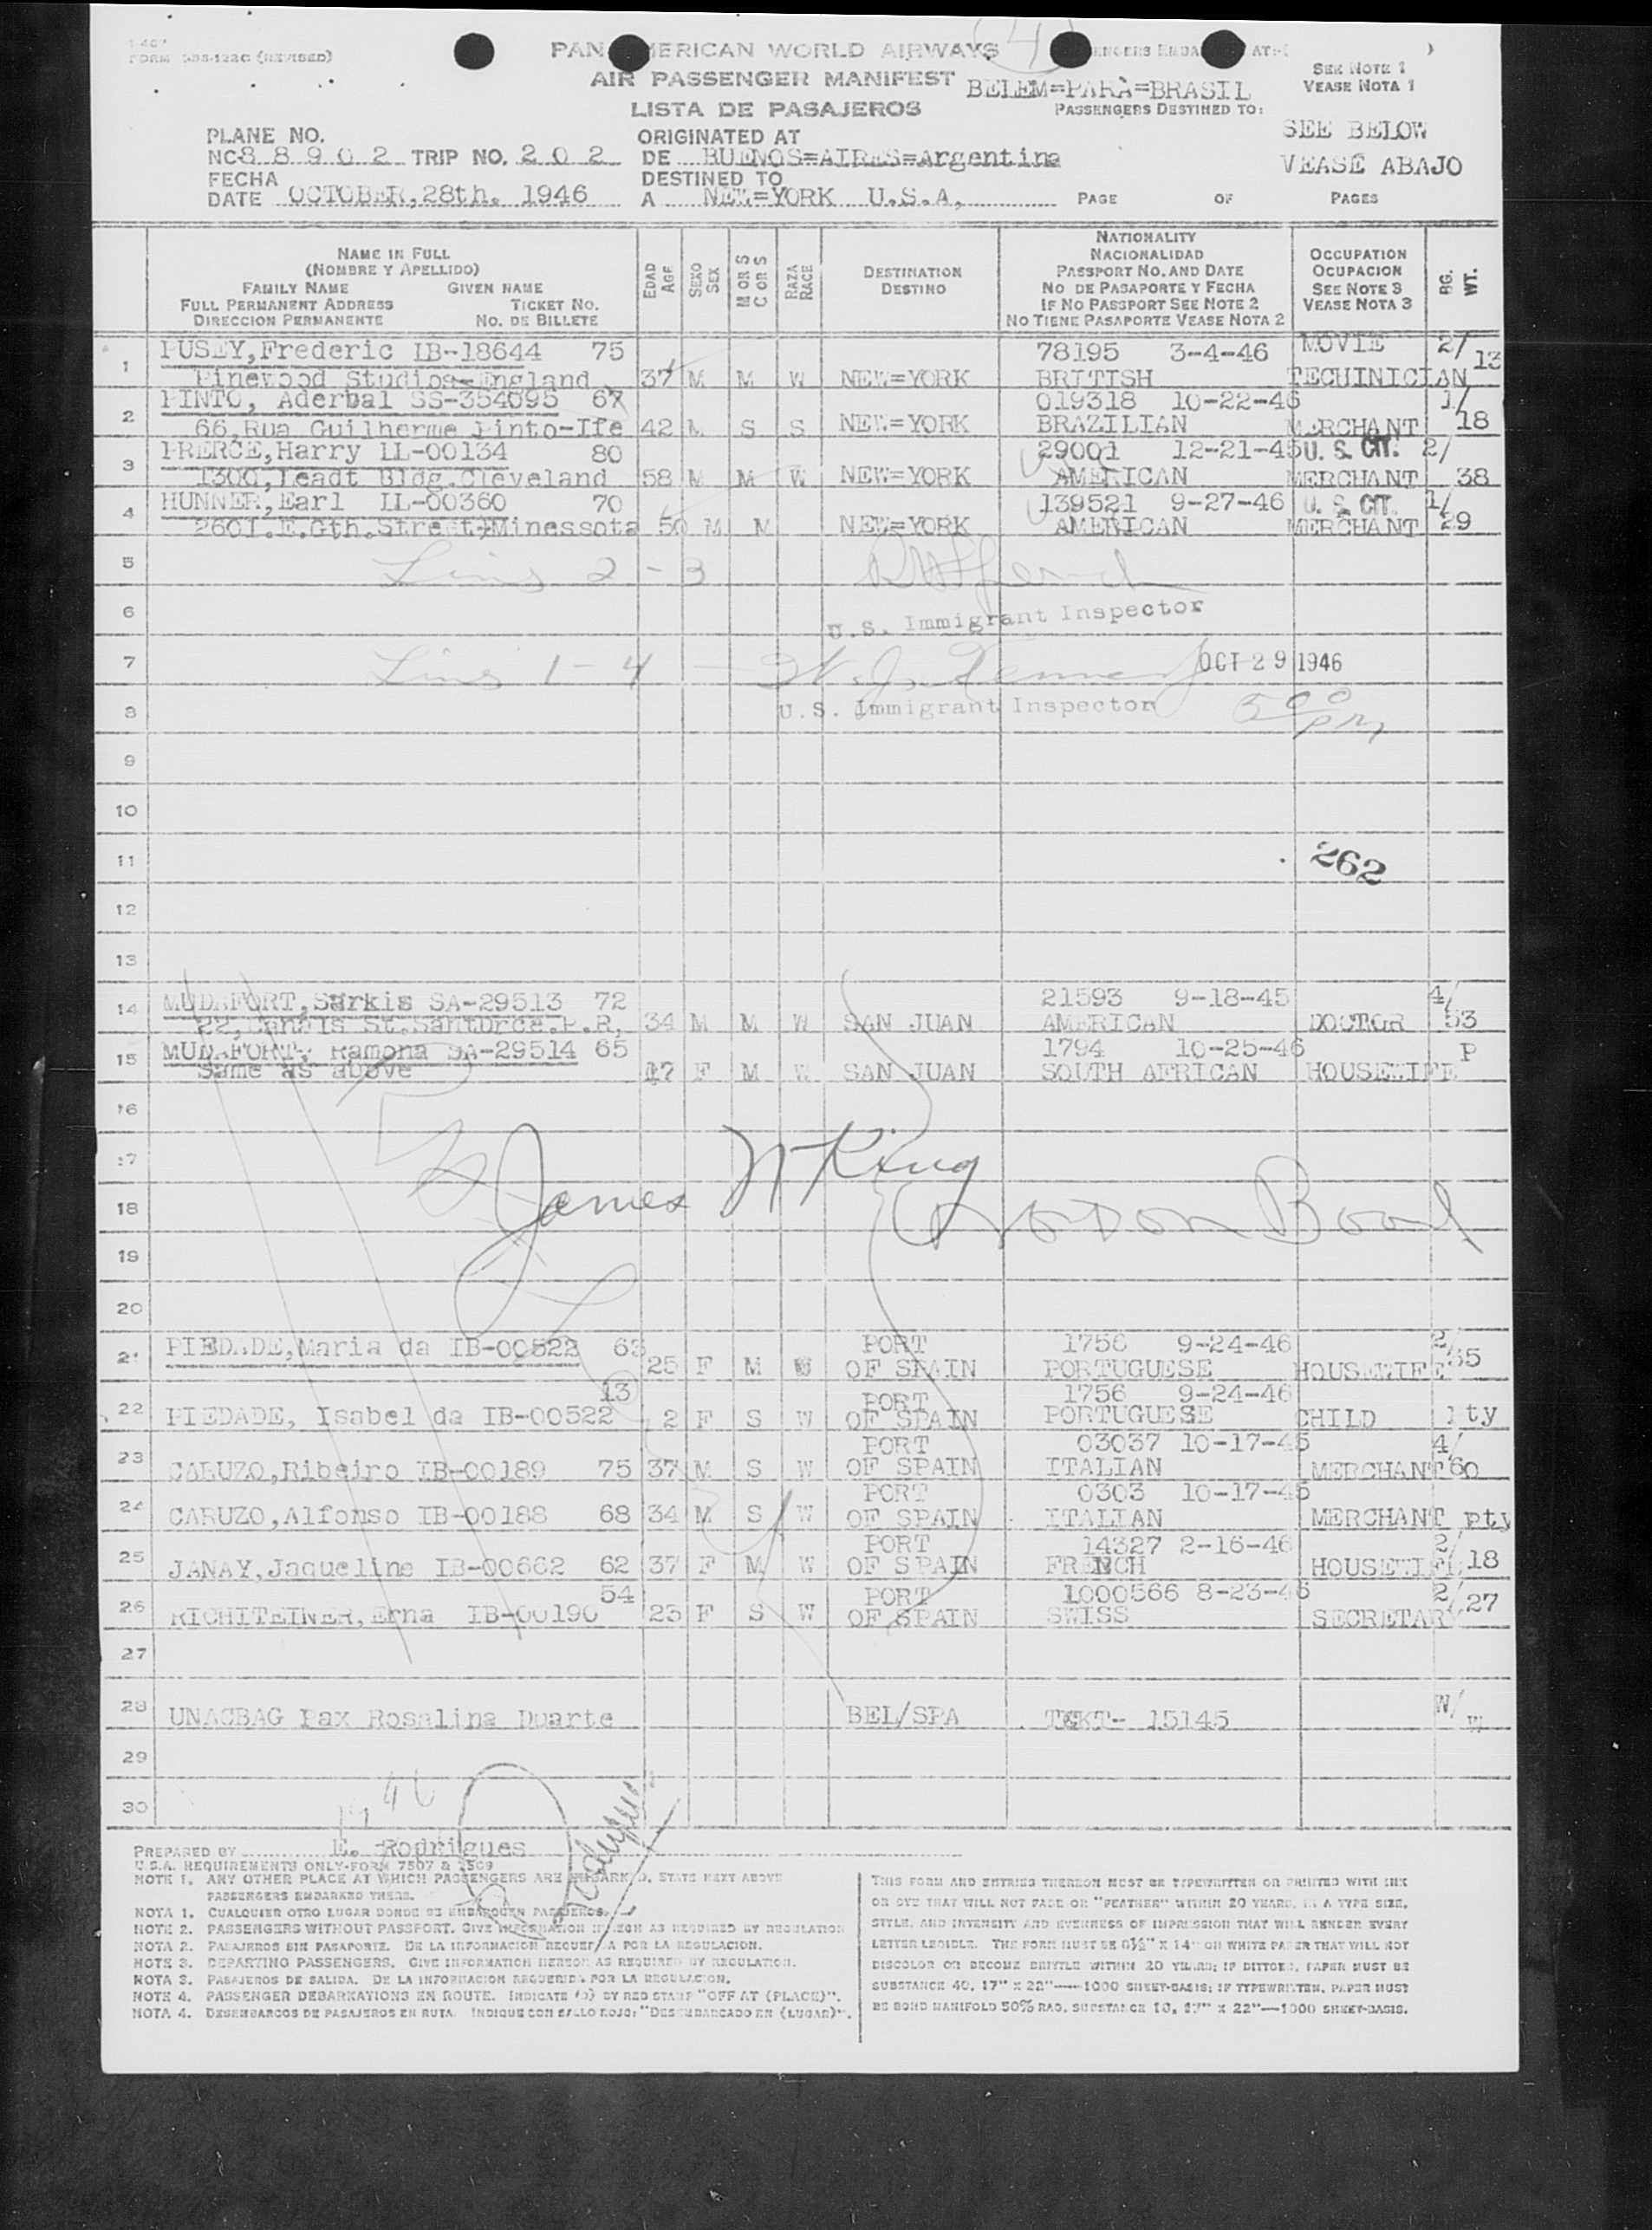 FORM (REVISED)
PAN AMERICAN WORLD AIRWAYS (4)
AIR PASSENGER MANIFEST
LISTA DE PASAJEROS
BELEM=PARÀ=BRASIL
PASSENGERS DESTINED TO:
SEE NOTE 1
VEASE NOTA 1
SEE BELOW
VEASE ABAJO
PLANE NO.
NC-88902 TRIP NO. 202
ORIGINATED AT
DE BUENOS=AIRES=Argentina
FECHA
DATE OCTOBER,28th. 1946
DESTINED TO
A NEW=YORK U.S.A,
PAGE OF PAGES
NAME IN FULL
(NOMBRE Y APELLIDO)
FAMILY NAME GIVEN NAME
FULL PERMANENT ADDRESS TICKET NO.
DIRECCION PERMANENTE NO. DE BILLETE
EDAD AGE
SEXO SEX
M OR S C OR S
RAZA RACE
DESTINATION
DESTINO
NATIONALITY
NACIONALIDAD
PASSPORT NO. AND DATE
NO DE PASAPORTE Y FECHA
IF NO PASSPORT SEE NOTE 2
NO TIENE PASAPORTE VEASE NOTA 2
OCCUPATION
OCUPACION
SEE NOTE 3
VEASE NOTA 3
BG. WT.
1 PUSEY,Frederic IB-18644 75 78195 3-4-46 MOVIE 2/13
Pinewood Studios-England 37 M M W NEW=YORK BRITISH TECHINICIAN
2 PINTO, Aderbal SS-354095 67 019318 10-22-46 1/18
66,Rua Guilherme Pinto-Ife 42 M S S NEW=YORK BRAZILIAN MERCHANT
3 PRERCE,Harry LL-00134 80 29001 12-21-45 U. S. CIT. 2/
1300,Leadt Bldg.Cleveland 58 M M W NEW=YORK AMERICAN MERCHANT 38
4 HUNNER,Earl LL-00360 70 139521 9-27-46 U. S. CIT. 1/
2601.E.Gth.Street,Minessota 50 M M NEW=YORK AMERICAN MERCHANT 29
5 Lines 2 - 3
6 U.S. Immigrant Inspector
7 Lines 1 - 4 - W. J. Kennedy OCT 29 1946
8 U.S. Immigrant Inspector 5 00 pm
9
10
11 262
12
13
14 MUDAFORT,Sarkis SA-29513 72 21593 9-18-45 4/
22,Canals St.Santurce.P.R, 34 M M W SAN JUAN AMERICAN DOCTOR 53
15 MUDAFORT, Ramona SA-29514 65 1794 10-25-46 P
Same as above 17 F M W SAN JUAN SOUTH AFRICAN HOUSEWIFE
16
17 James N King
18
19
20
21 PIEDADE,Maria da IB-00522 63 PORT 1756 9-24-46 2/
25 F M W OF SPAIN PORTUGUESE HOUSEWIFE 35
22 13 PORT 1756 9-24-46
PIEDADE, Isabel da IB-00522 2 F S W OF SPAIN PORTUGUESE CHILD pty
23 PORT 03037 10-17-45 4/
CARUZO,Ribeiro IB-00189 75 37 M S W OF SPAIN ITALIAN MERCHANT 60
24 PORT 0303 10-17-45
CARUZO,Alfonso IB-00188 68 34 M S W OF SPAIN ITALIAN MERCHANT pty
25 PORT 14327 2-16-46 2/
JANAY,Jaqueline IB-00662 62 37 F M W OF SPAIN FRENCH HOUSEWIFE 18
26 54 PORT 1000566 8-23-46 2/
RICHITEINER,Erna IB-00190 23 F S W OF SPAIN SWISS SECRETARY 27
27
28 UNACBAG Pax Rosalina Duarte BEL/SPA TCKT- 15145 W/W
29
30
PREPARED BY E. Rodrigues
U.S.A. REQUIREMENTS ONLY-FORM 7507 & 7509
NOTE 1. ANY OTHER PLACE AT WHICH PASSENGERS ARE EMBARKED, STATE NEXT ABOVE
PASSENGERS EMBARKED THERE.
NOTA 1. CUALQUIER OTRO LUGAR DONDE SE EMBARQUEN PASAJEROS.
NOTE 2. PASSENGERS WITHOUT PASSPORT. GIVE INFORMATION HEREON AS REQUIRED BY REGULATION
NOTA 2. PASAJEROS SIN PASAPORTE. DE LA INFORMACION REQUERIDA POR LA REGULACION.
NOTE 3. DEPARTING PASSENGERS. GIVE INFORMATION HEREON AS REQUIRED BY REGULATION.
NOTA 3. PASAJEROS DE SALIDA. DE LA INFORMACION REQUERIDA POR LA REGULACION.
NOTE 4. PASSENGER DEBARKATIONS EN ROUTE. INDICATE (D) BY RED STAMP "OFF AT (PLACE)".
NOTA 4. DESEMBARCOS DE PASAJEROS EN RUTA. INDIQUE CON SELLO ROJO: "DESEMBARCADO EN (LUGAR)".
THIS FORM AND ENTRIES THEREON MUST BE TYPEWRITTEN OR PRINTED WITH INK
OR DYE THAT WILL NOT FADE OR "FEATHER" WITHIN 20 YEARS, IN A TYPE SIZE,
STYLE, AND INTENSITY AND EVENNESS OF IMPRESSION THAT WILL RENDER EVERY
LETTER LEGIBLE. THE FORM MUST BE 8½" X 14" ON WHITE PAPER THAT WILL NOT
DISCOLOR OR BECOME BRITTLE WITHIN 20 YEARS; IF DITTOED, PAPER MUST BE
SUBSTANCE 40, 17" X 22"—1000 SHEET-BASIS; IF TYPEWRITTEN, PAPER MUST
BE BOND MANIFOLD 50% RAG, SUBSTANCE 10, 17" X 22"—1000 SHEET-BASIS.